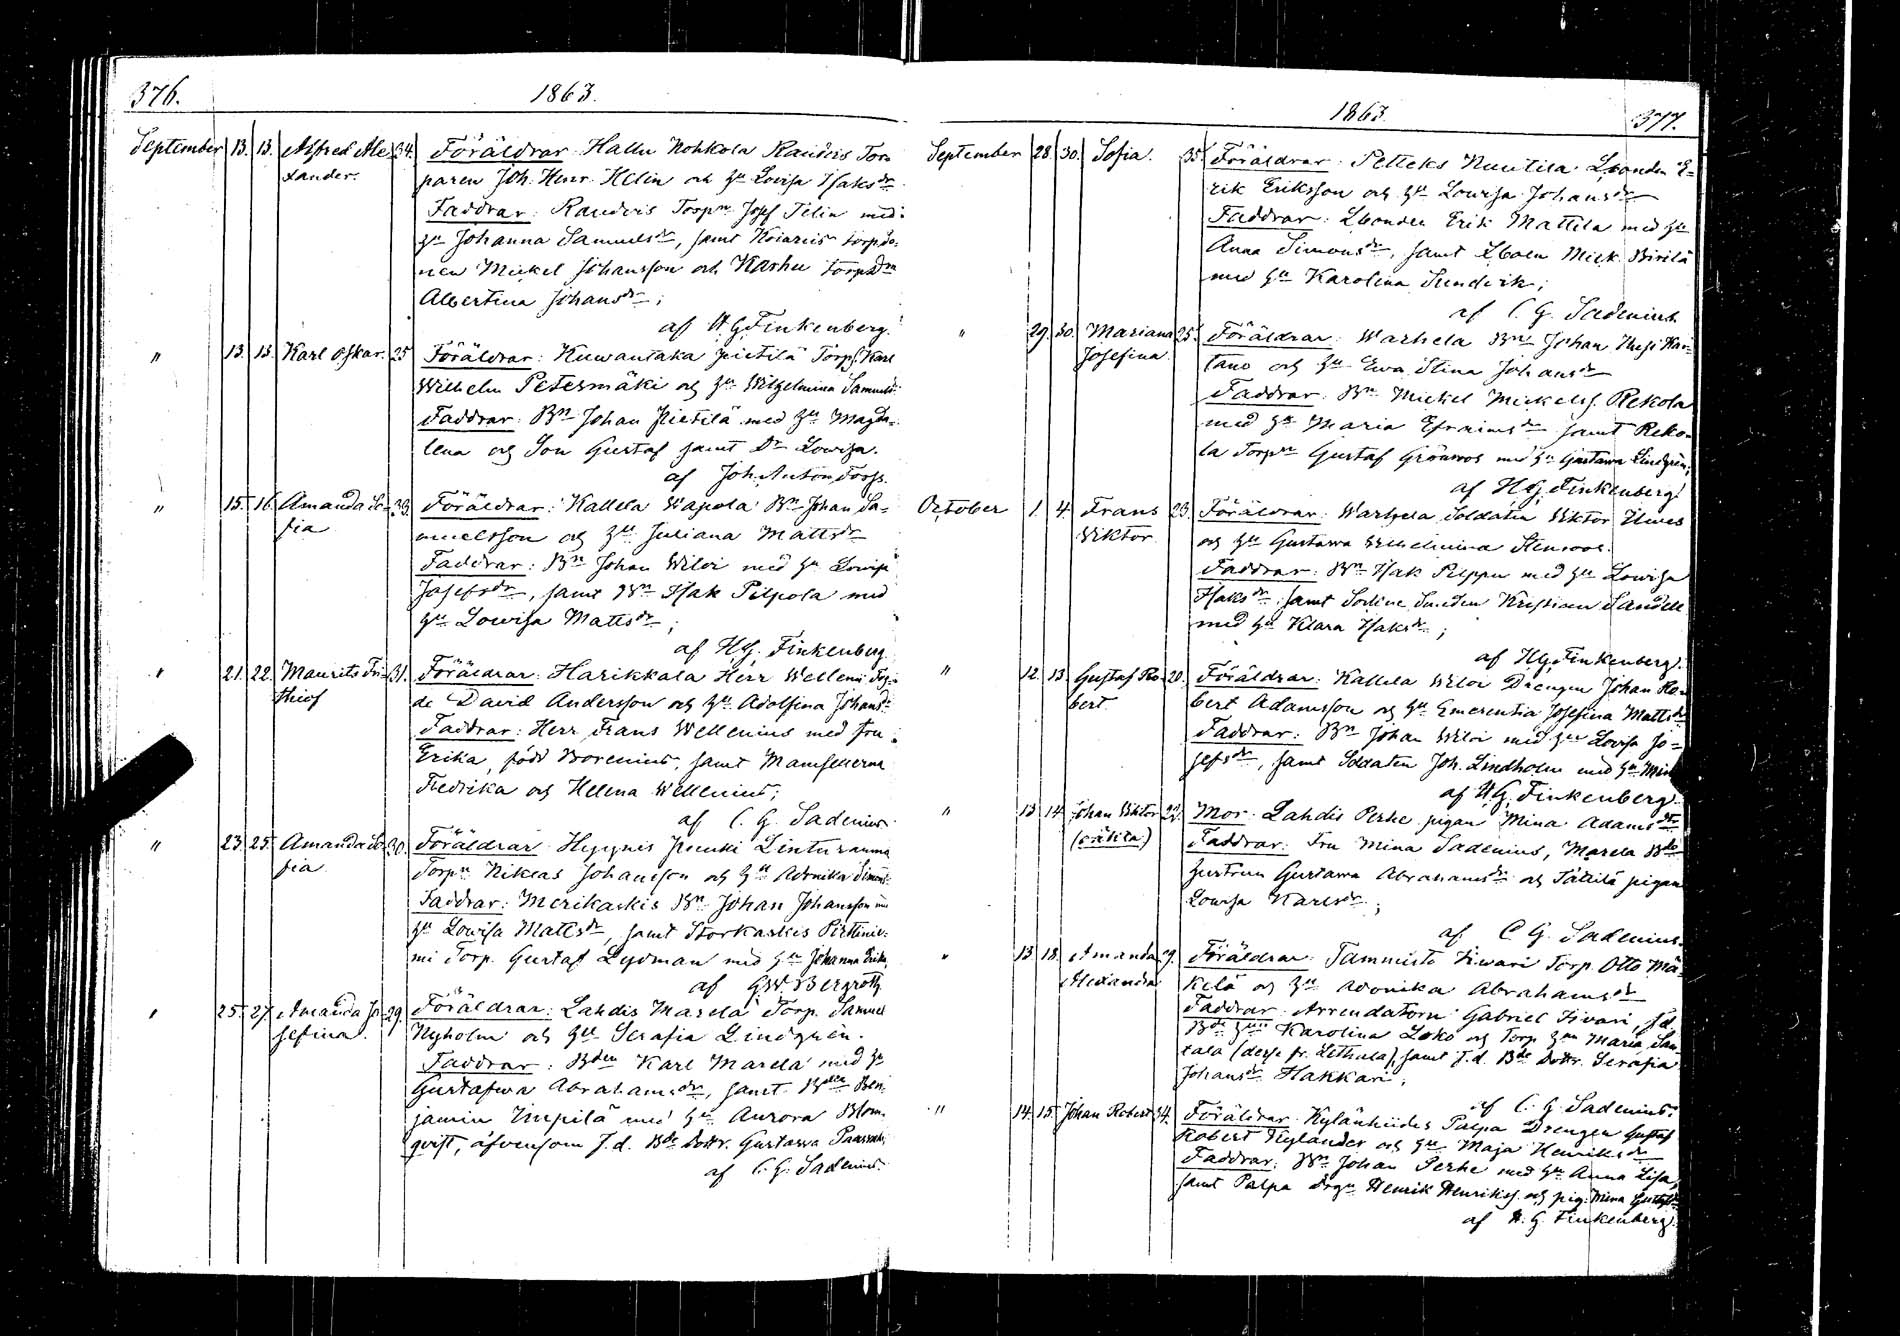 376. 1863.
September 13. 13. Alfred Ale- 34. Föräldrar: Hallu Nohkola Raudois Tor-
xander. paren Joh. Henr. Helin och hu Lovisa Isaksdr
Faddrar: Torpn Josef Felin med
hu Johanna Samuelsdr, samt
nen Mickel Johansson och Karhu
Albertina Johansdr;
af H G Finkenberg.
" 13. 13. Karl Oskar. 25 Föräldrar: Kuwantaka Pietilä Torp. Karl
Wilhelm Petermäki och hu Wilhelmina Samuelsdr
Faddrar: Bn Johan Pietilä med hu Magda-
lena och Son Gustaf samt Dr Lowisa.
af Joh. Anton Forss.
" 15. 16. Amanda So- 33. Föräldrar: Kallela Wapola Bn Johan Sa-
fia muelsson och hu Juliana Mattsdr
Faddrar: Bn Johan Wiloi med hu Lowisa
Josefsdr, samt Bn Isak Pilpola med
hu Lowisa Mattsdr;
af H G. Finkenberg
" 21. 22. Maurits Fri- 31. Föräldrar: Harikkala Herr Welleni Fog-
thiof de David Andersson och hu Adolfina Johansdr
Faddrar: Herr Frans Wellenius med fru
Erika, född Borenius, samt Mamsellerna
Fredrika och Helena Wellenius;
af C. G. Sadenius
" 23. 25. Amanda So- 30. Föräldrar: Hyrynis Lintunauma
fia Torpn Niklas Johansson och hu Adonika Simonsdr
Faddrar: Merikaskis Bn Johan Johansson med
hu Lowisa Mattsdr, samt Storkaskis Pirttinie-
mi Torp. Gustaf Lydman med hu Johanna Eriks.
af G W. Bergroth
" 25. 27. Amanda Jo- 29. Föräldrar: Lahdis Marela Torp. Samuel
sefina. Nyholm och hu Serafia Lindgrén.
Faddrar: Bden Karl Marela med hu
Gustafwa Abrahamsdr, samt Bden Ben-
jamin Impilä med hu Aurora Blom-
qvist, äfvensom f.d. Bde Dottr. Gustawa
af C. G. Sadenius.
1863. 377.
September 28. 30. Sofia. 35. Föräldrar: Petteks Nuutila Lbonden E-
rik Eriksson och hu Lowisa Johansdr
Faddrar: Lbonden Erik Mattila med hu
Anna Simonsdr, samt Lbden Mick. Birilä
med hu Karolina Sundvik;
af C. G. Sadenius
" 29. 30. Mariana 25. Föräldrar: Warhela Bn Johan Kar-
Josefina. tano och hu Ewa Stina Johansdr
Faddrar: Bn Mickel Mickelss. Rekola
med hu Maria Efraimsdr samt Reko-
la Torpn Gustaf Grönroos med hu Gustawa Lindgrén;
af H G. Finkenberg
October 1. 4. Frans 23. Föräldrar: Warhela Soldaten Wiktor Ilmes
Wiktor och hu Gustawa Wilhelmina Stenroos.
Faddrar: Bn Isak Pilppu med hu Lowisa
Isaksdr; samt Kristian Sandell
med hu Klara Isaksdr;
af H G Finkenberg.
" 12. 13. Gustaf Ro- 20. Föräldrar: Kallela Wiloi Drengen Johan Ro-
bert bert Adamsson och hu Emerentia Josefina Mattsdr
Faddrar: Bn Johan Wiloi med hu Lovisa Jo-
sefsdr, samt Soldaten Joh. Lindholm med hu
af H G Finkenberg
" 13 14 Johan Wiktor 22. Mor: Lahdis Perhe pigan Mina Adamsdr
(oäkta) Faddrar: Fru Mina Sadenius, Marela Bde
hustrun Gustawa Abrahamsdr och Tätilä pigan
Lowisa Karlsdr;
af C G. Sadenius.
" 13 18. Amanda 29. Föräldrar: Tammisto Kiwari Torp. Otto Mä-
Alexandra kilä och hu Adonika Abrahamsdr
Faddrar: Arrendatorn Gabriel Kivari, f.d.
Bde hun Karolina Loko och Torp. hun Maria San-
tala (desse fr. Lethala), samt f.d. Bde Dottr. Serafia
Johansdr Hakkari;
af C. G. Sadenius.
" 14. 15. Johan Robert 34. Föräldrar: Kylänhiides Palpa Drengen Gustaf
Robert Kylander och hu Maja Henriksdr
Faddrar: Bn Johan Perhe med hu Anna Lisa,
samt Palpa drgn Henrik Henrikss. och pig. Mina Gustafsdr
af H. G. Finkenberg.